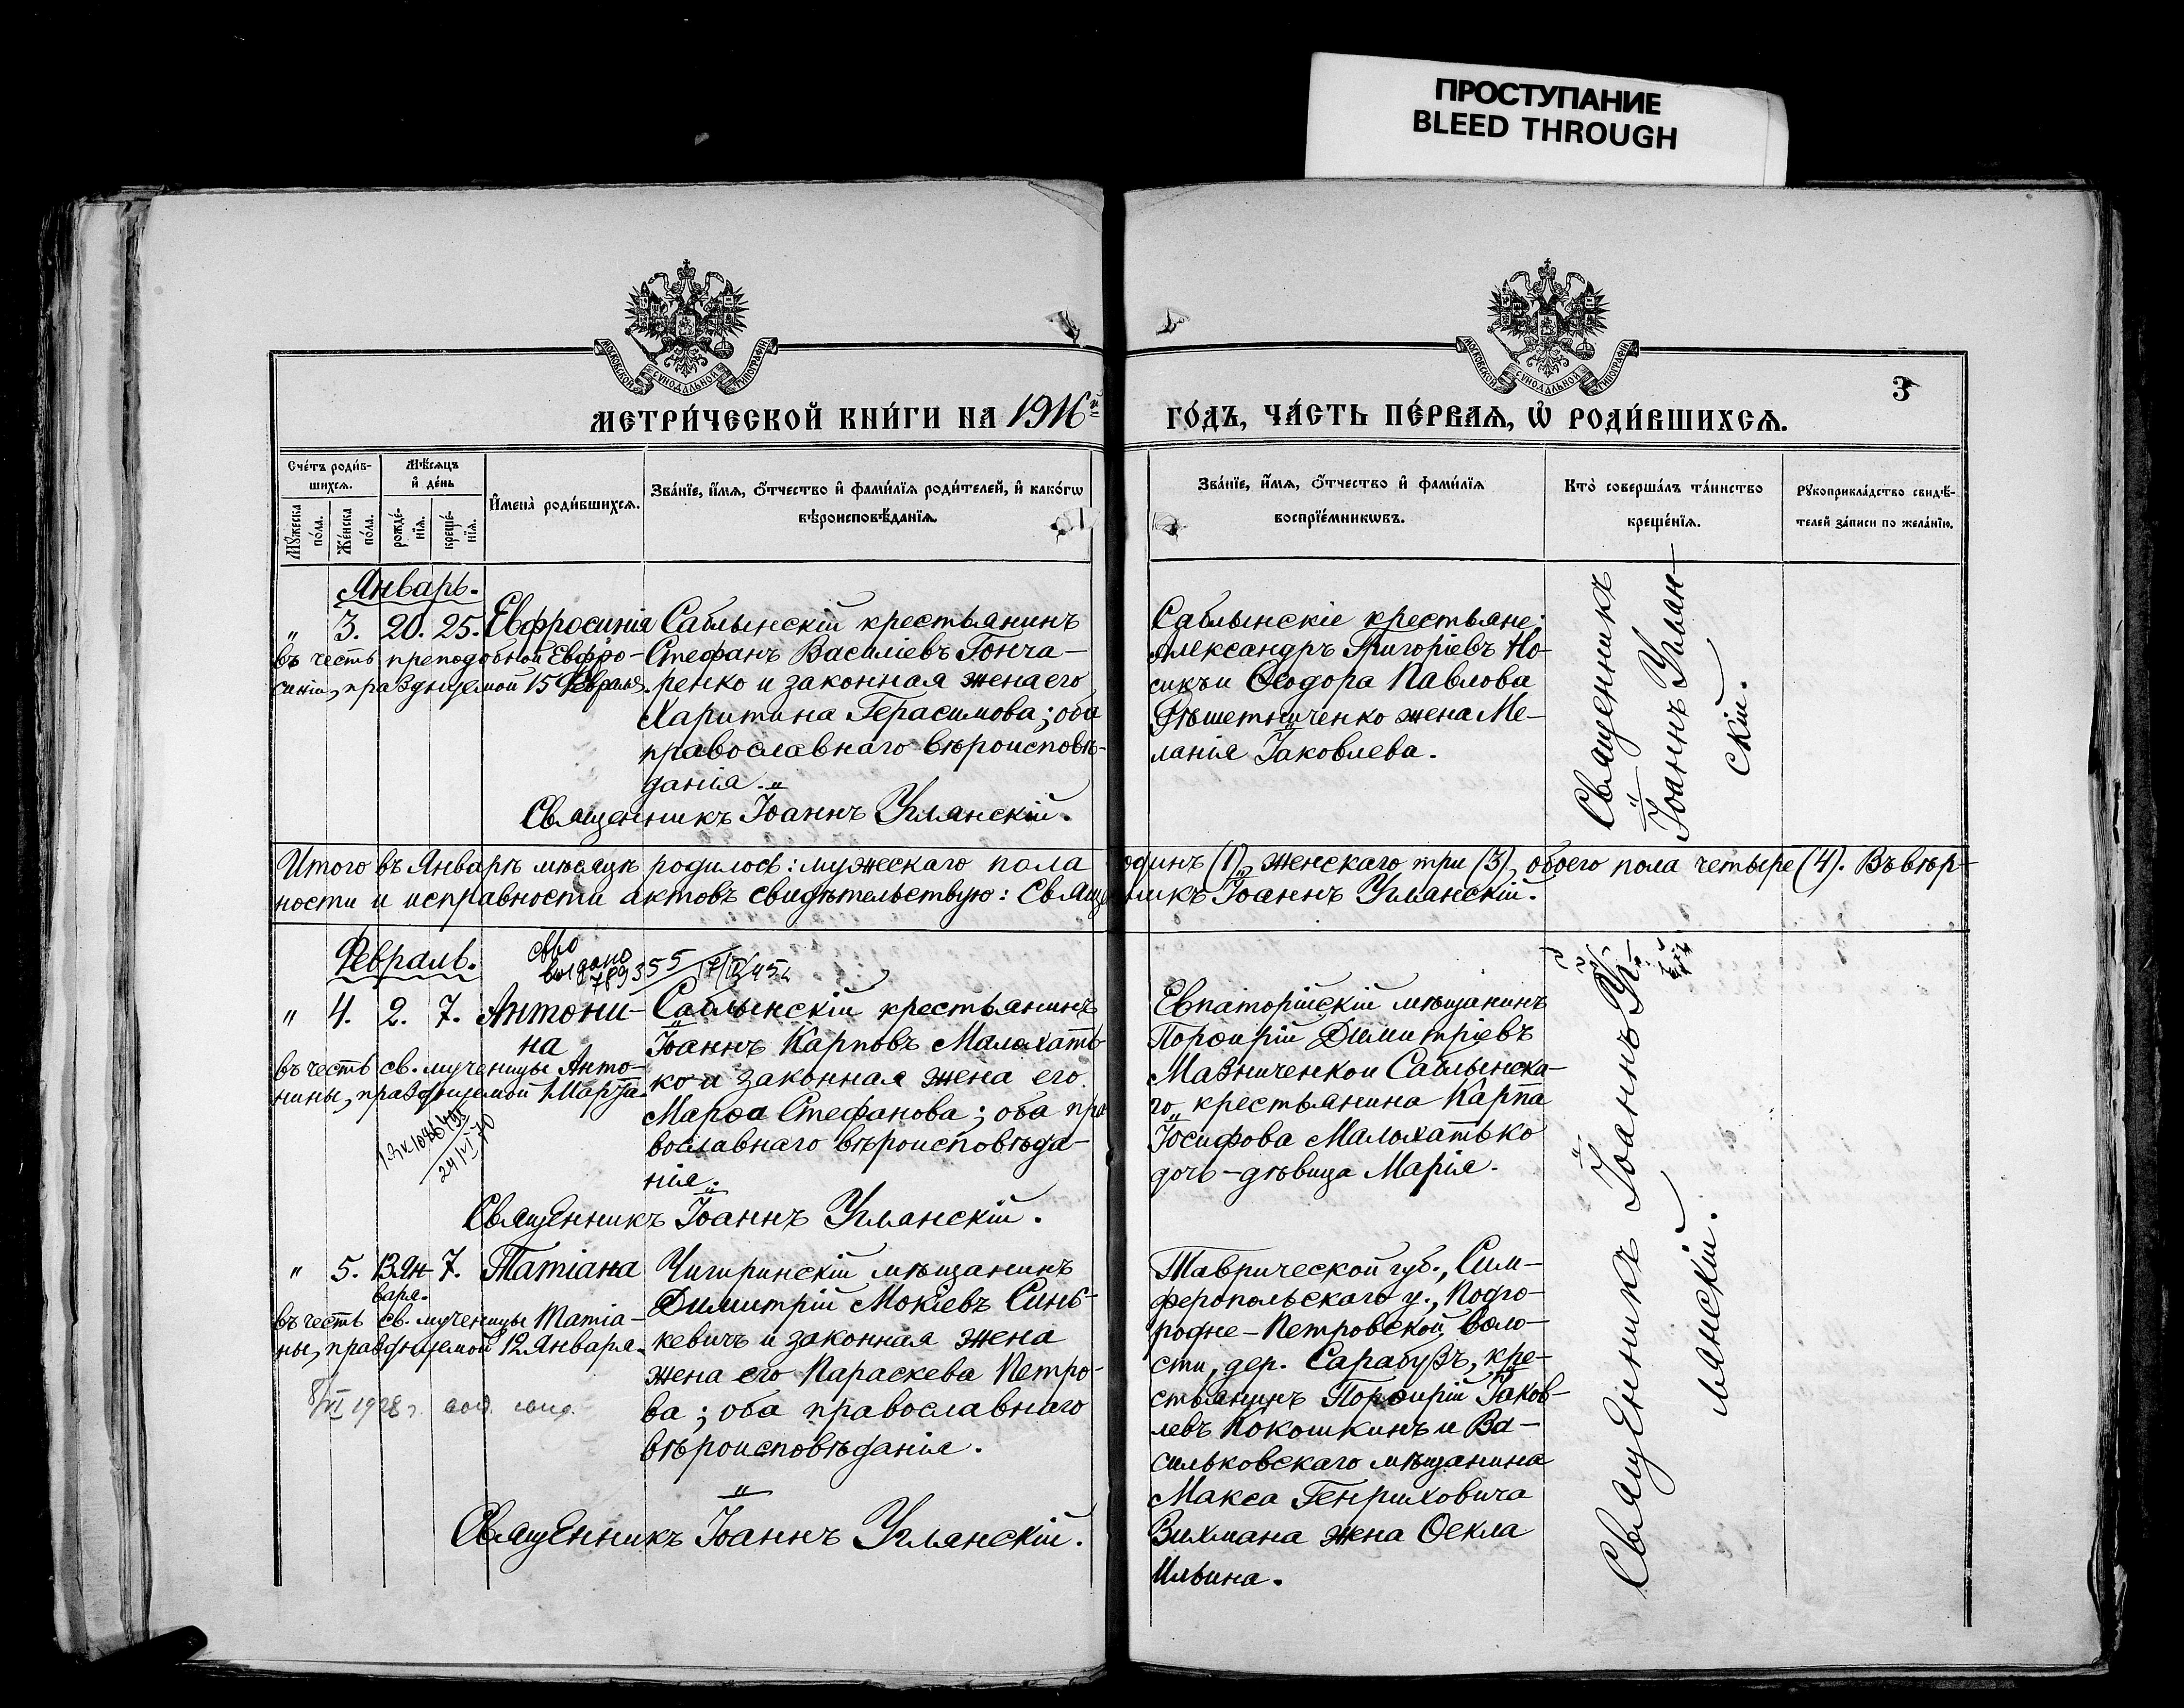 ПРОСТУПАНИЕ
BLEED THROUGH
МОСКОВСКОЙ СѴНОДАЛЬНОЙ ТИПОГРАФІИ
МОСКОВСКОЙ СѴНОДАЛЬНОЙ ТИПОГРАФІИ
3
МЕТРИ́ЧЕСКОЙ КНИ́ГИ НА 1916й
ГО́ДЪ, ЧА́СТЬ ПЕ́РВАѦ, Ѡ҆ РОДИ́ВШИХСѦ.
Сче́тъ роди́в-
шихсѧ.
Мужеска по́ла.
Же́нска по́ла.
Мѣ́сѧцъ
и҆ де́нь
рожде́-
нїѧ.
креще́-
нїѧ.
И҆мена̀ роди́вшихсѧ.
Зва́нїе, и҆́мѧ, ѻ҆́тчество и҆ фами́лїѧ роди́телей, и҆ како́гѡ
вѣроисповѣ́данїѧ.
Зва́нїе, и҆́мѧ, ѻ҆́тчество и҆ фами́лїѧ
воспрїе́мникѡвъ.
Кто̀ соверша́лъ та́инство
креще́нїѧ.
Рукоприкла́дство свидѣ́-
телей за́писи по жела́нїю.
Январь.
" 3. 20. 25. Евфросинія
въ честь преподобной Евфро-
синіи, празднуемой 15 Февраля.
Саблынскій крестьянинъ
Стефанъ Василіевъ Гонча-
ренко и законная жена его
Харитина Герасимова; оба
православнаго вѣроисповѣ-
данія.
Священникъ Іоаннъ Углянскій.
Саблынскіе крестьяне:
Александръ Григоріевъ Но-
сикъ и Ѳеодора Павлова
Рѣшетниченко жена Ме-
ланія Іаковлева.
Священникъ
Іоаннъ Углян-
скій.
Итого въ Январѣ мѣсяцѣ родилось: мужескаго пола одинъ (1), женскаго три (3), обоего пола четыре (4). Въ вѣр-
ности и исправности актовъ свидѣтельствую: Священникъ Іоаннъ Углянскій.
Февраль.
выдано
" 4. 2. 7. Антони-
на
въ честь св. мученицы Анто-
нины, празднуемой 1 Марта.
Саблынскій крестьянинъ
Іоаннъ Карповъ Малохать-
ко и законная жена его
Марѳа Стефанова; оба пра
вославнаго вѣроисповѣда-
нія.
Священникъ Іоаннъ Углянскій.
Евпаторійскій мѣщанинъ
Порфирій Димитріевъ
Мазниченко и Саблынска-
го крестьянина Карпа
Іосифова Малохатько
дочь-дѣвица Марія.
" 5. 13 Ян- 7. Татіана
варя.
въ честь св. мученицы Татіа-
ны, празднуемой 12 Января.
1928 г.
Чигиринскій мѣщанинъ
Димитрій Мокіевъ Синь-
кевичъ и законная жена
жена его Параскева Петро-
ва; оба православнаго
вѣроисповѣданія.
Священникъ Іоаннъ Углянскій.
Таврической губ., Сим-
феропольскаго у., Подго-
родне-Петровской воло-
сти, дер. Сарабузъ, кре-
стьянинъ Порфирій Іаков-
левъ Кокошкинъ и Ва-
сильковскаго мѣщанина
Макса Генриховича
Вихмана жена Ѳекла
Ильина.
Священникъ Іоаннъ Уг-
лянскій.